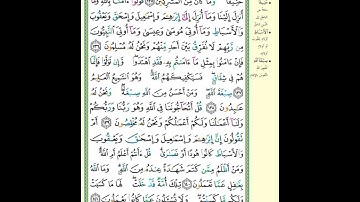 حَنِيفًا وَمَا كَانَ مِنَ الْمُشْرِكِينَ ١٣٥ قُولُوا ءَامَنَّا بِاللَّهِ وَمَا
أُنزِلَ إِلَيْنَا وَمَا أُنزِلَ إِلَىٰ إِبْرَٰهِـۧمَ وَإِسْمَٰعِيلَ وَإِسْحَٰقَ وَيَعْقُوبَ
وَالْأَسْبَاطِ وَمَا أُوتِيَ مُوسَىٰ وَعِيسَىٰ وَمَا أُوتِيَ النَّبِيُّونَ
مِن رَّبِّهِمْ لَا نُفَرِّقُ بَيْنَ أَحَدٍ مِّنْهُمْ وَنَحْنُ لَهُ مُسْلِمُونَ ١٣٦
فَإِنْ ءَامَنُوا بِمِثْلِ مَا ءَامَنتُم بِهِ فَقَدِ اهْتَدَوا وَّإِن تَوَلَّوْا فَإِنَّمَا
هُمْ فِي شِقَاقٍ فَسَيَكْفِيكَهُمُ اللَّهُ وَهُوَ السَّمِيعُ الْعَلِيمُ
١٣٧ صِبْغَةَ اللَّهِ وَمَنْ أَحْسَنُ مِنَ اللَّهِ صِبْغَةً وَنَحْنُ لَهُ
عَٰبِدُونَ ١٣٨ قُلْ أَتُحَاجُّونَنَا فِي اللَّهِ وَهُوَ رَبُّنَا وَرَبُّكُمْ
وَلَنَا أَعْمَٰلُنَا وَلَكُمْ أَعْمَٰلُكُمْ وَنَحْنُ لَهُ مُخْلِصُونَ ١٣٩ أَمْ
تَقُولُونَ إِنَّ إِبْرَٰهِـۧمَ وَإِسْمَٰعِيلَ وَإِسْحَٰقَ وَيَعْقُوبَ
وَالْأَسْبَاطَ كَانُوا هُودًا أَوْ نَصَٰرَىٰ قُلْ ءَأَنتُمْ أَعْلَمُ أَمِ اللَّهُ
وَمَنْ أَظْلَمُ مِمَّن كَتَمَ شَهَٰدَةً عِندَهُ مِنَ اللَّهِ وَمَا اللَّهُ
بِغَٰفِلٍ عَمَّا تَعْمَلُونَ ١٤٠ تِلْكَ أُمَّةٌ قَدْ خَلَتْ لَهَا مَا كَسَبَتْ
وَلَكُم مَّا كَسَبْتُمْ وَلَا تُسْـَٔلُونَ عَمَّا كَانُوا يَعْمَلُونَ ١٤١